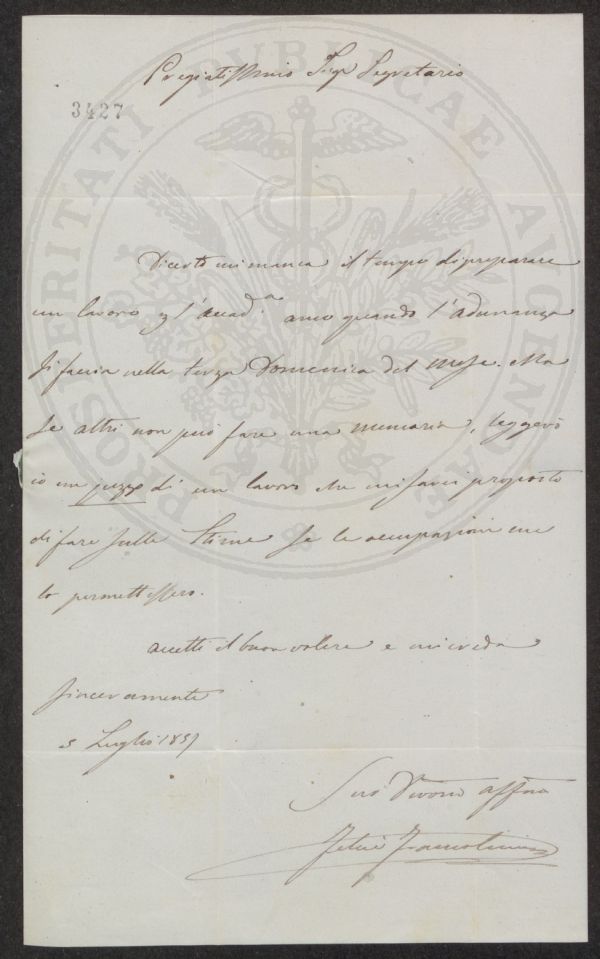 Pregiatissimo Sigr Segretario
3427
PROSTERITATI PVBLICAE AVGENDAE
Di certo mi manca il tempo di preparare
un lavoro p l'accad.a anco quando l'adunanza
si faccia nella terza Domenica del mese. Ma
se altri non può fare una memoria, leggerò
io un pezzo di un lavoro che mi sarei proposto
di fare sulle Stime se le occupazioni me
lo permettessero.
Accetti il buon volere e mi creda
sinceramente
5 Luglio 1857
Suo Devmo affmo